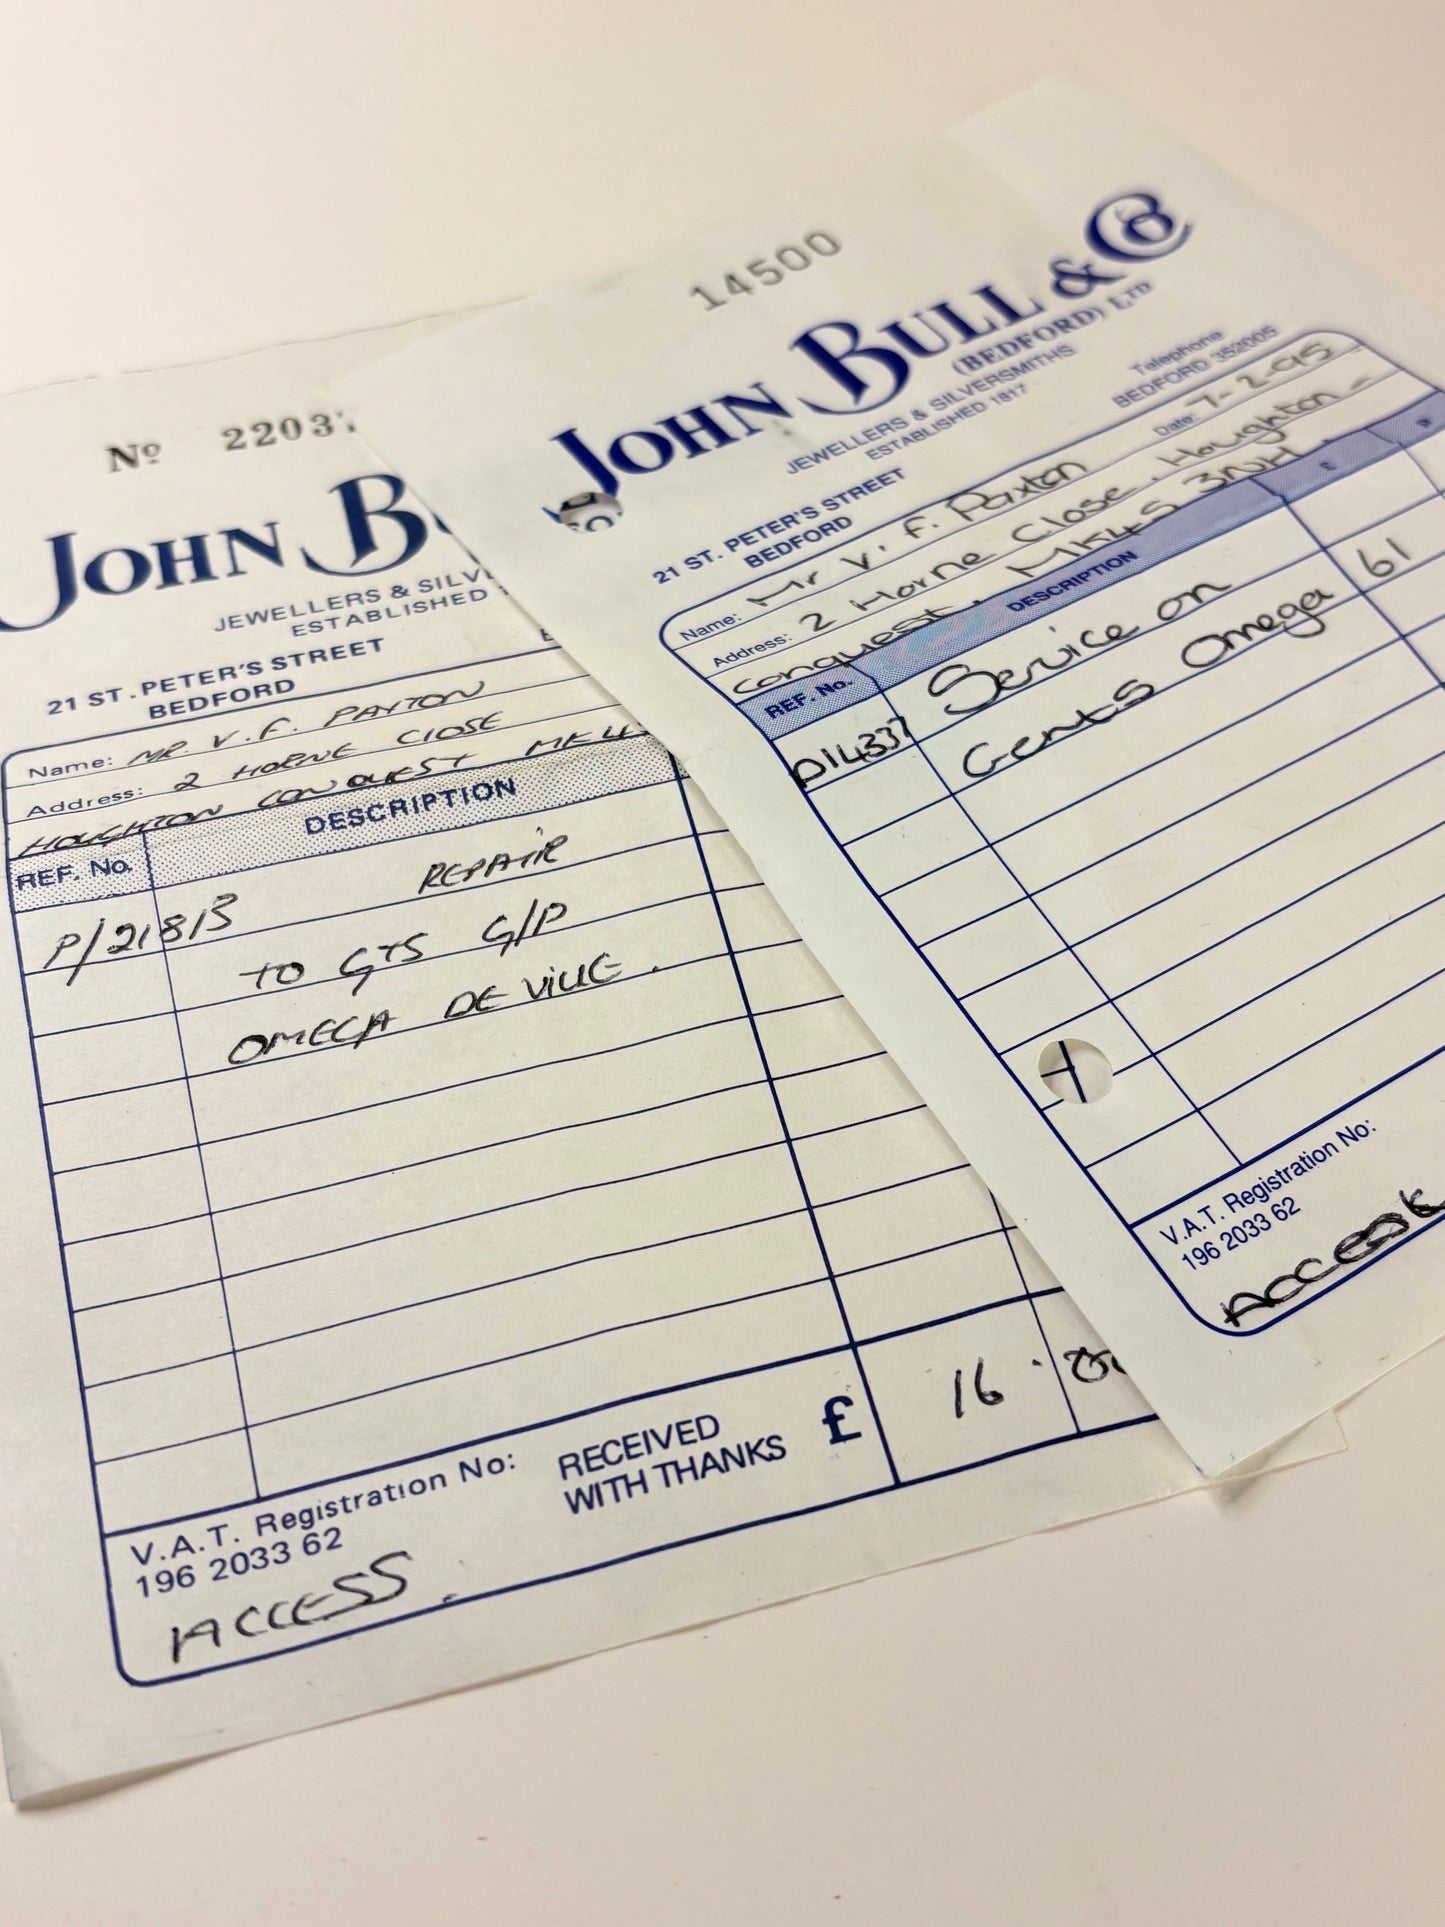 Nº 22037
JOHN B
JEWELLERS & SILV
ESTABLISHED
21 ST. PETER'S STREET
BEDFORD
Name: MR. V. F. PAXTON
Address: 2 HORNE CLOSE
HOUGHTON CONQUEST MK4
REF. No. DESCRIPTION
P/21813 REPAIR
TO GTS G/P
OMEGA DE VILLE.
V.A.T. Registration No:
196 2033 62
RECEIVED
WITH THANKS £ 16.00
ACCESS.
14500
JOHN BULL & Co
(BEDFORD) LTD
JEWELLERS & SILVERSMITHS
ESTABLISHED 1817
21 ST. PETER'S STREET
BEDFORD
Telephone
BEDFORD 352005
Date: 7-2-95
Name: Mr V. F. Paxton
Address: 2 Horne Close, Houghton -
Conquest, MK45 3NH.
REF. No. DESCRIPTION £ p
P14337 Service on
Gents Omega 61
V.A.T. Registration No:
196 2033 62